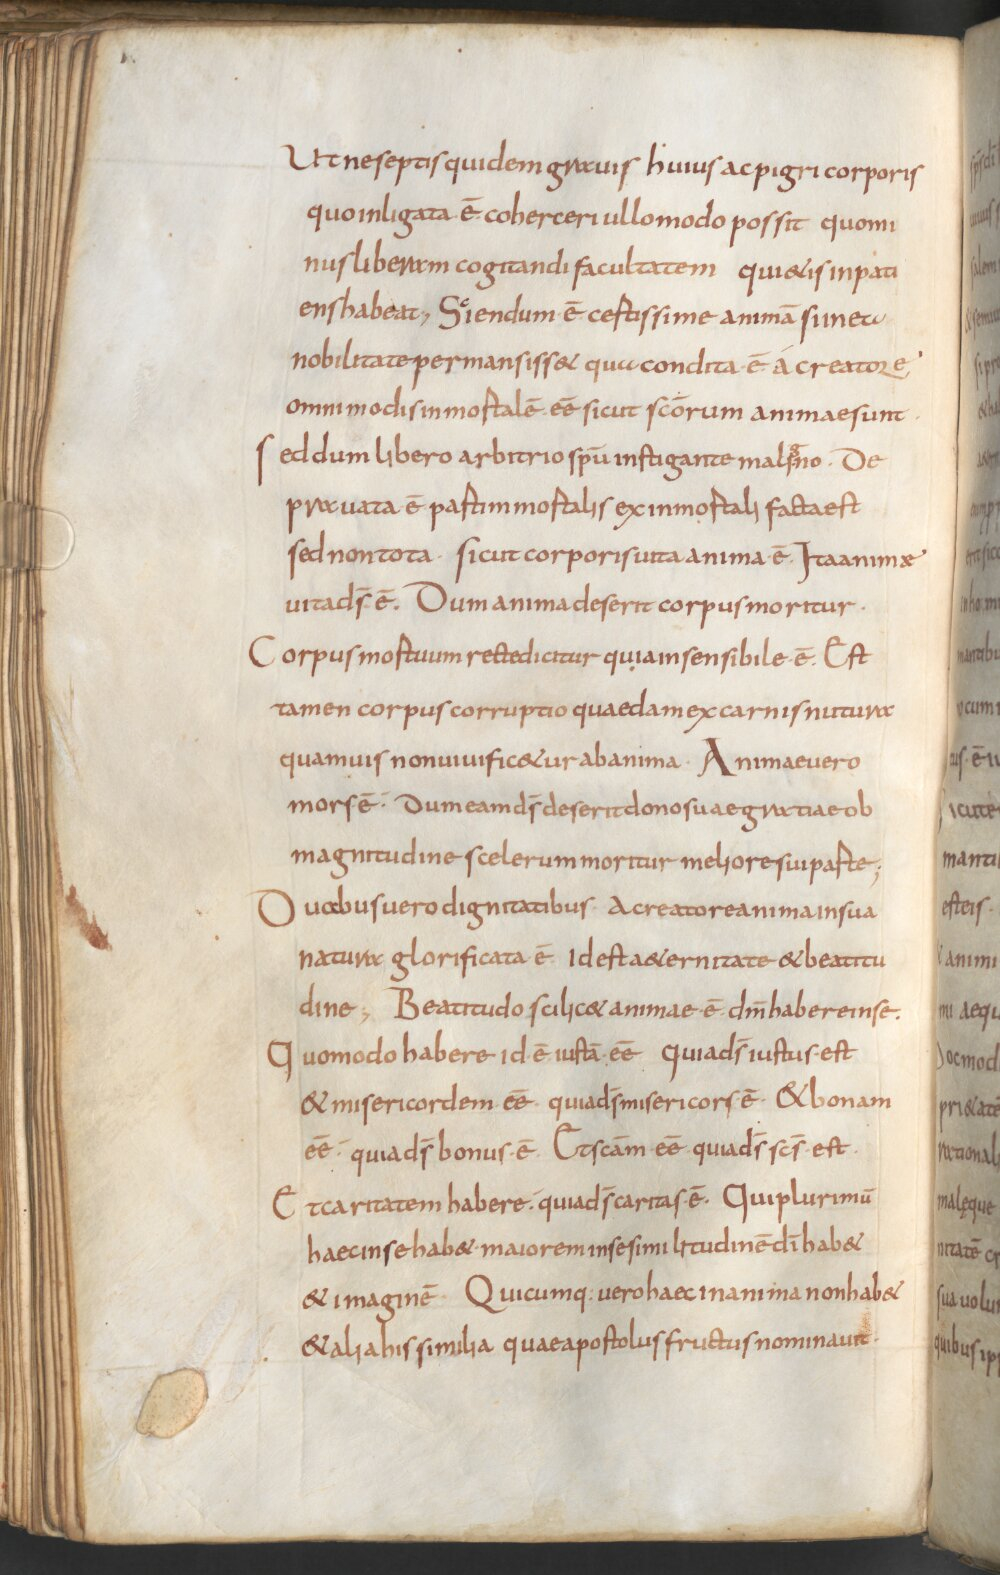 Ut ne septis quidem grauis huius ac pigri corporis
quo inligata ē coherceri ullo modo possit quomi
nus liberam cogitandi facultatem qui & is inpati
ens habeat; Sciendum ē certissime animā si in et
nobilitate permansiss& qua condita ē á creatore
omnimodis inmortalē eē sicut scōrum animae sunt.
Sed dum libero arbitrio spū instigante maligno. De
prauata ē partim mortalis ex inmortali facta est
sed non tota. sicut corporis uita anima ē. Ita animæ
uita ds̄ ē. Dum anima deserit corpus moritur.
Corpus mortuum recte dicitur quia insensibile ē. Est
tamen corpus corruptio quaedam ex carnis natura
quamuis non uiuific&ur ab anima. Animae uero
mors ē. dum eam ds̄ deserit dono suae gratiae ob
magnitudine scelerum moritur meliore sui parte;
Duabus uero dignitatibus. a creatore anima in sua
natura glorificata ē. id est a&ernitate & beatitu
dine; Beatitudo scilic& animae ē dm̄ habere in se.
Quomodo habere id ē iustā eē quia ds̄ iustus est
& misericordem eē. quia ds̄ misericors ē. & bonam
eē. quia ds̄ bonus ē. Et scām eē quia ds̄ scs̄ est.
Et caritatem habere. quia ds̄ caritas ē. Qui plurimū
haec in se hab& maiorem in se similitudinē dī hab&
& imaginē. Quicumq: uero haec in anima non hab&
& alia his similia quae apostolus fructus nominauit.